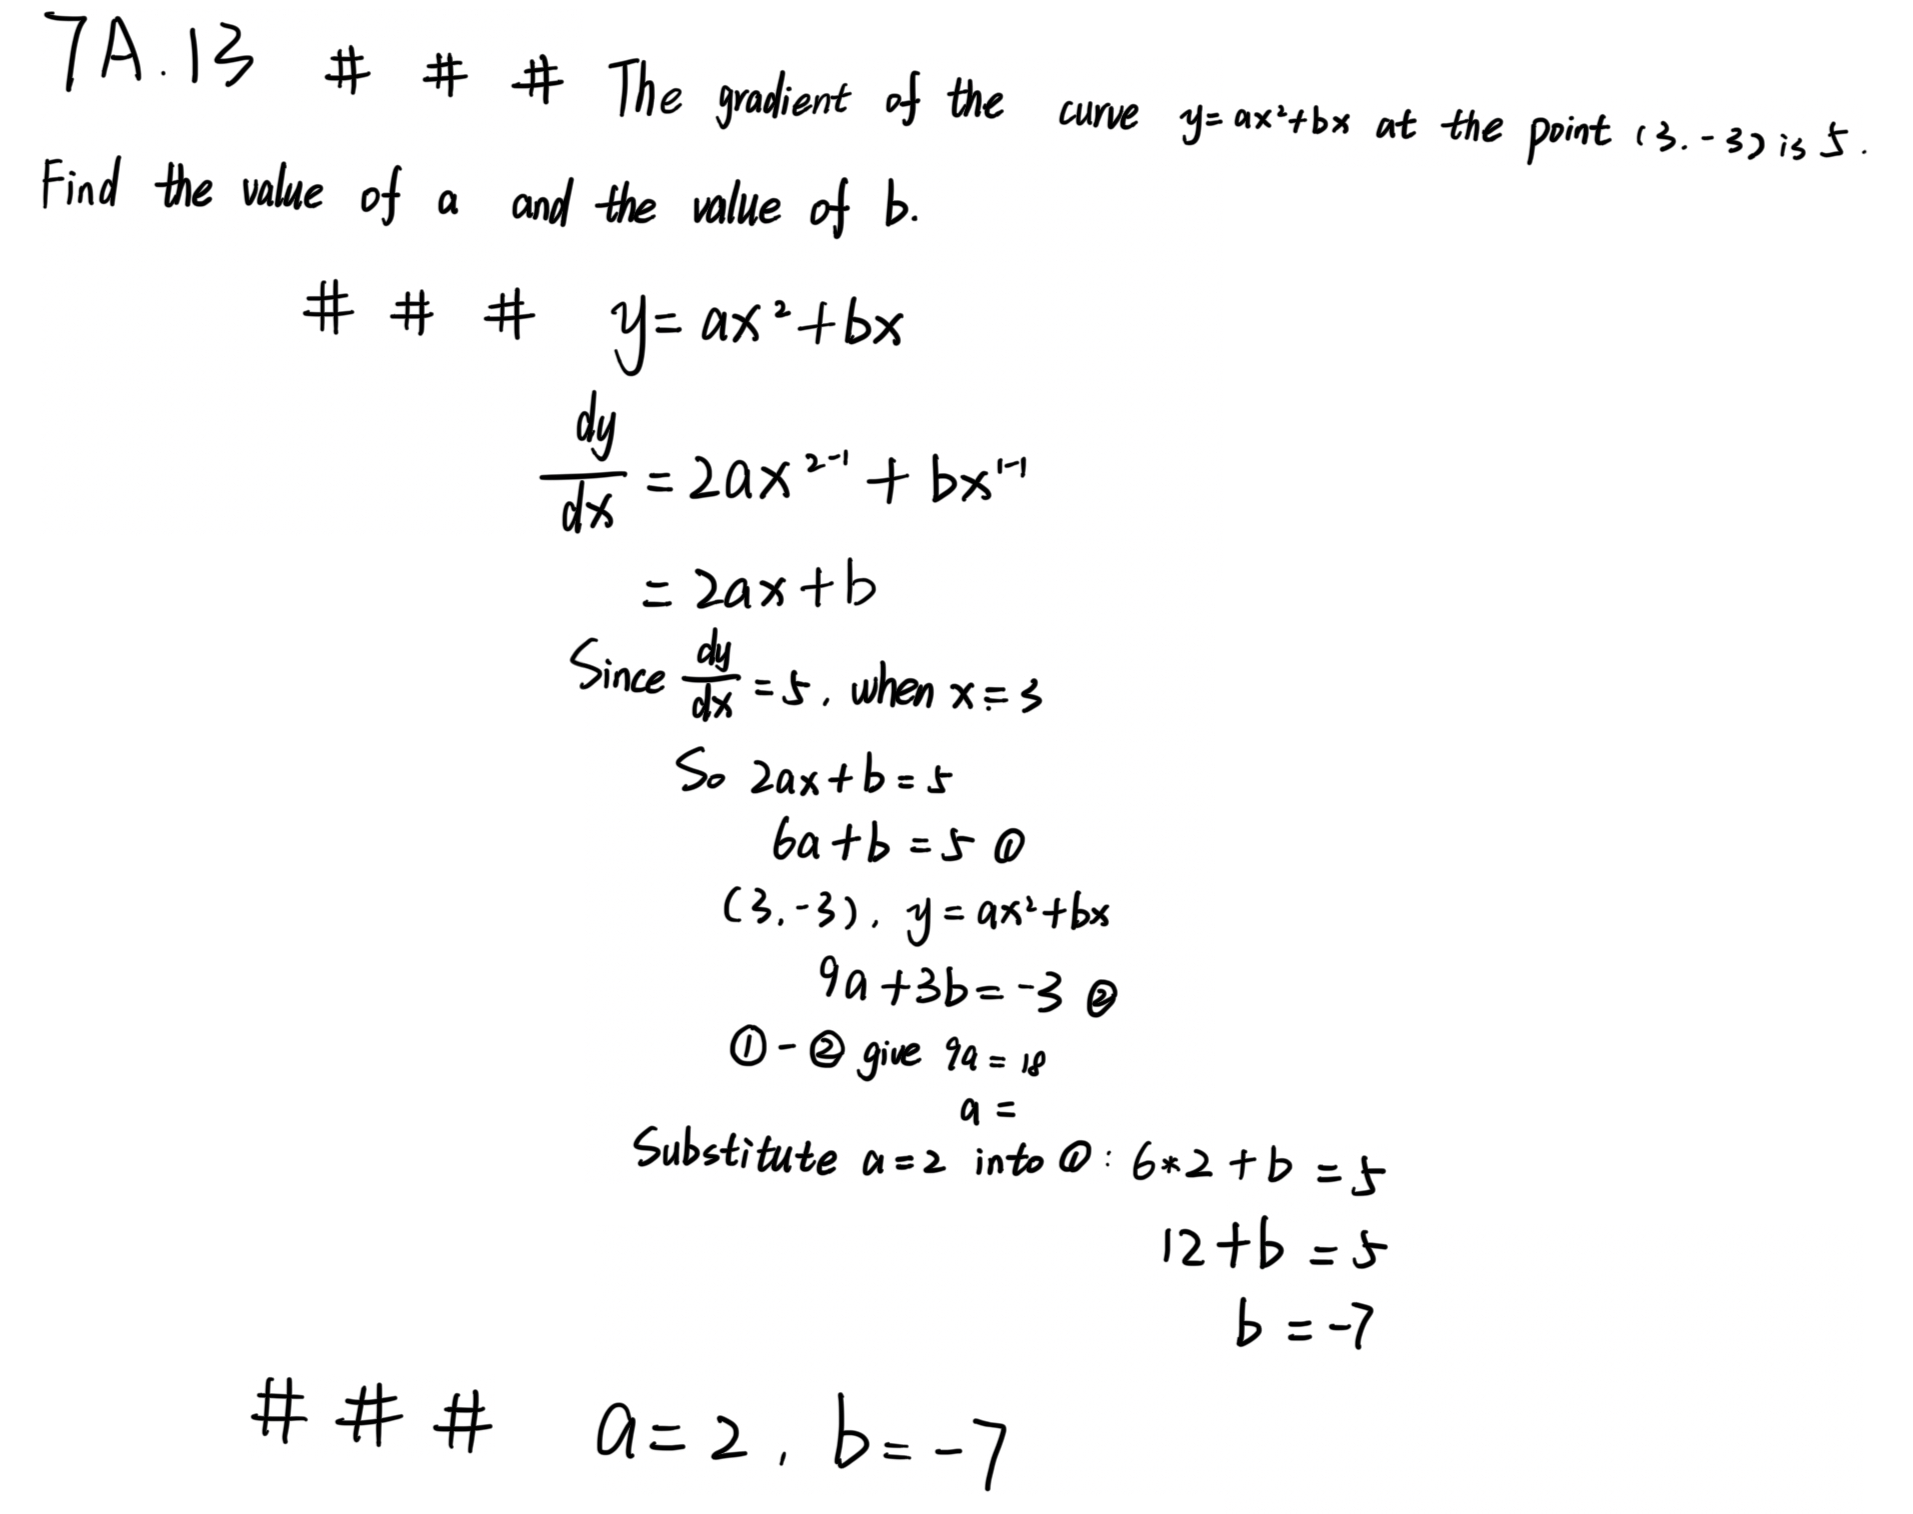 7A.13 # # # The gradient of the curve y=ax²+bx at the point (3.-3) is 5.
Find the value of a and the value of b.
# # # y=ax²+bx
dy/dx = 2ax²⁻¹ + bx¹⁻¹
= 2ax+b
Since dy/dx = 5, when x=3
So 2ax+b=5
6a+b=5 ①
(3.-3), y=ax²+bx
9a+3b=-3 ②
①-② give 9a=18
a=
Substitute a=2 into ①: 6*2+b=5
12+b=5
b=-7
# # # a=2, b=-7